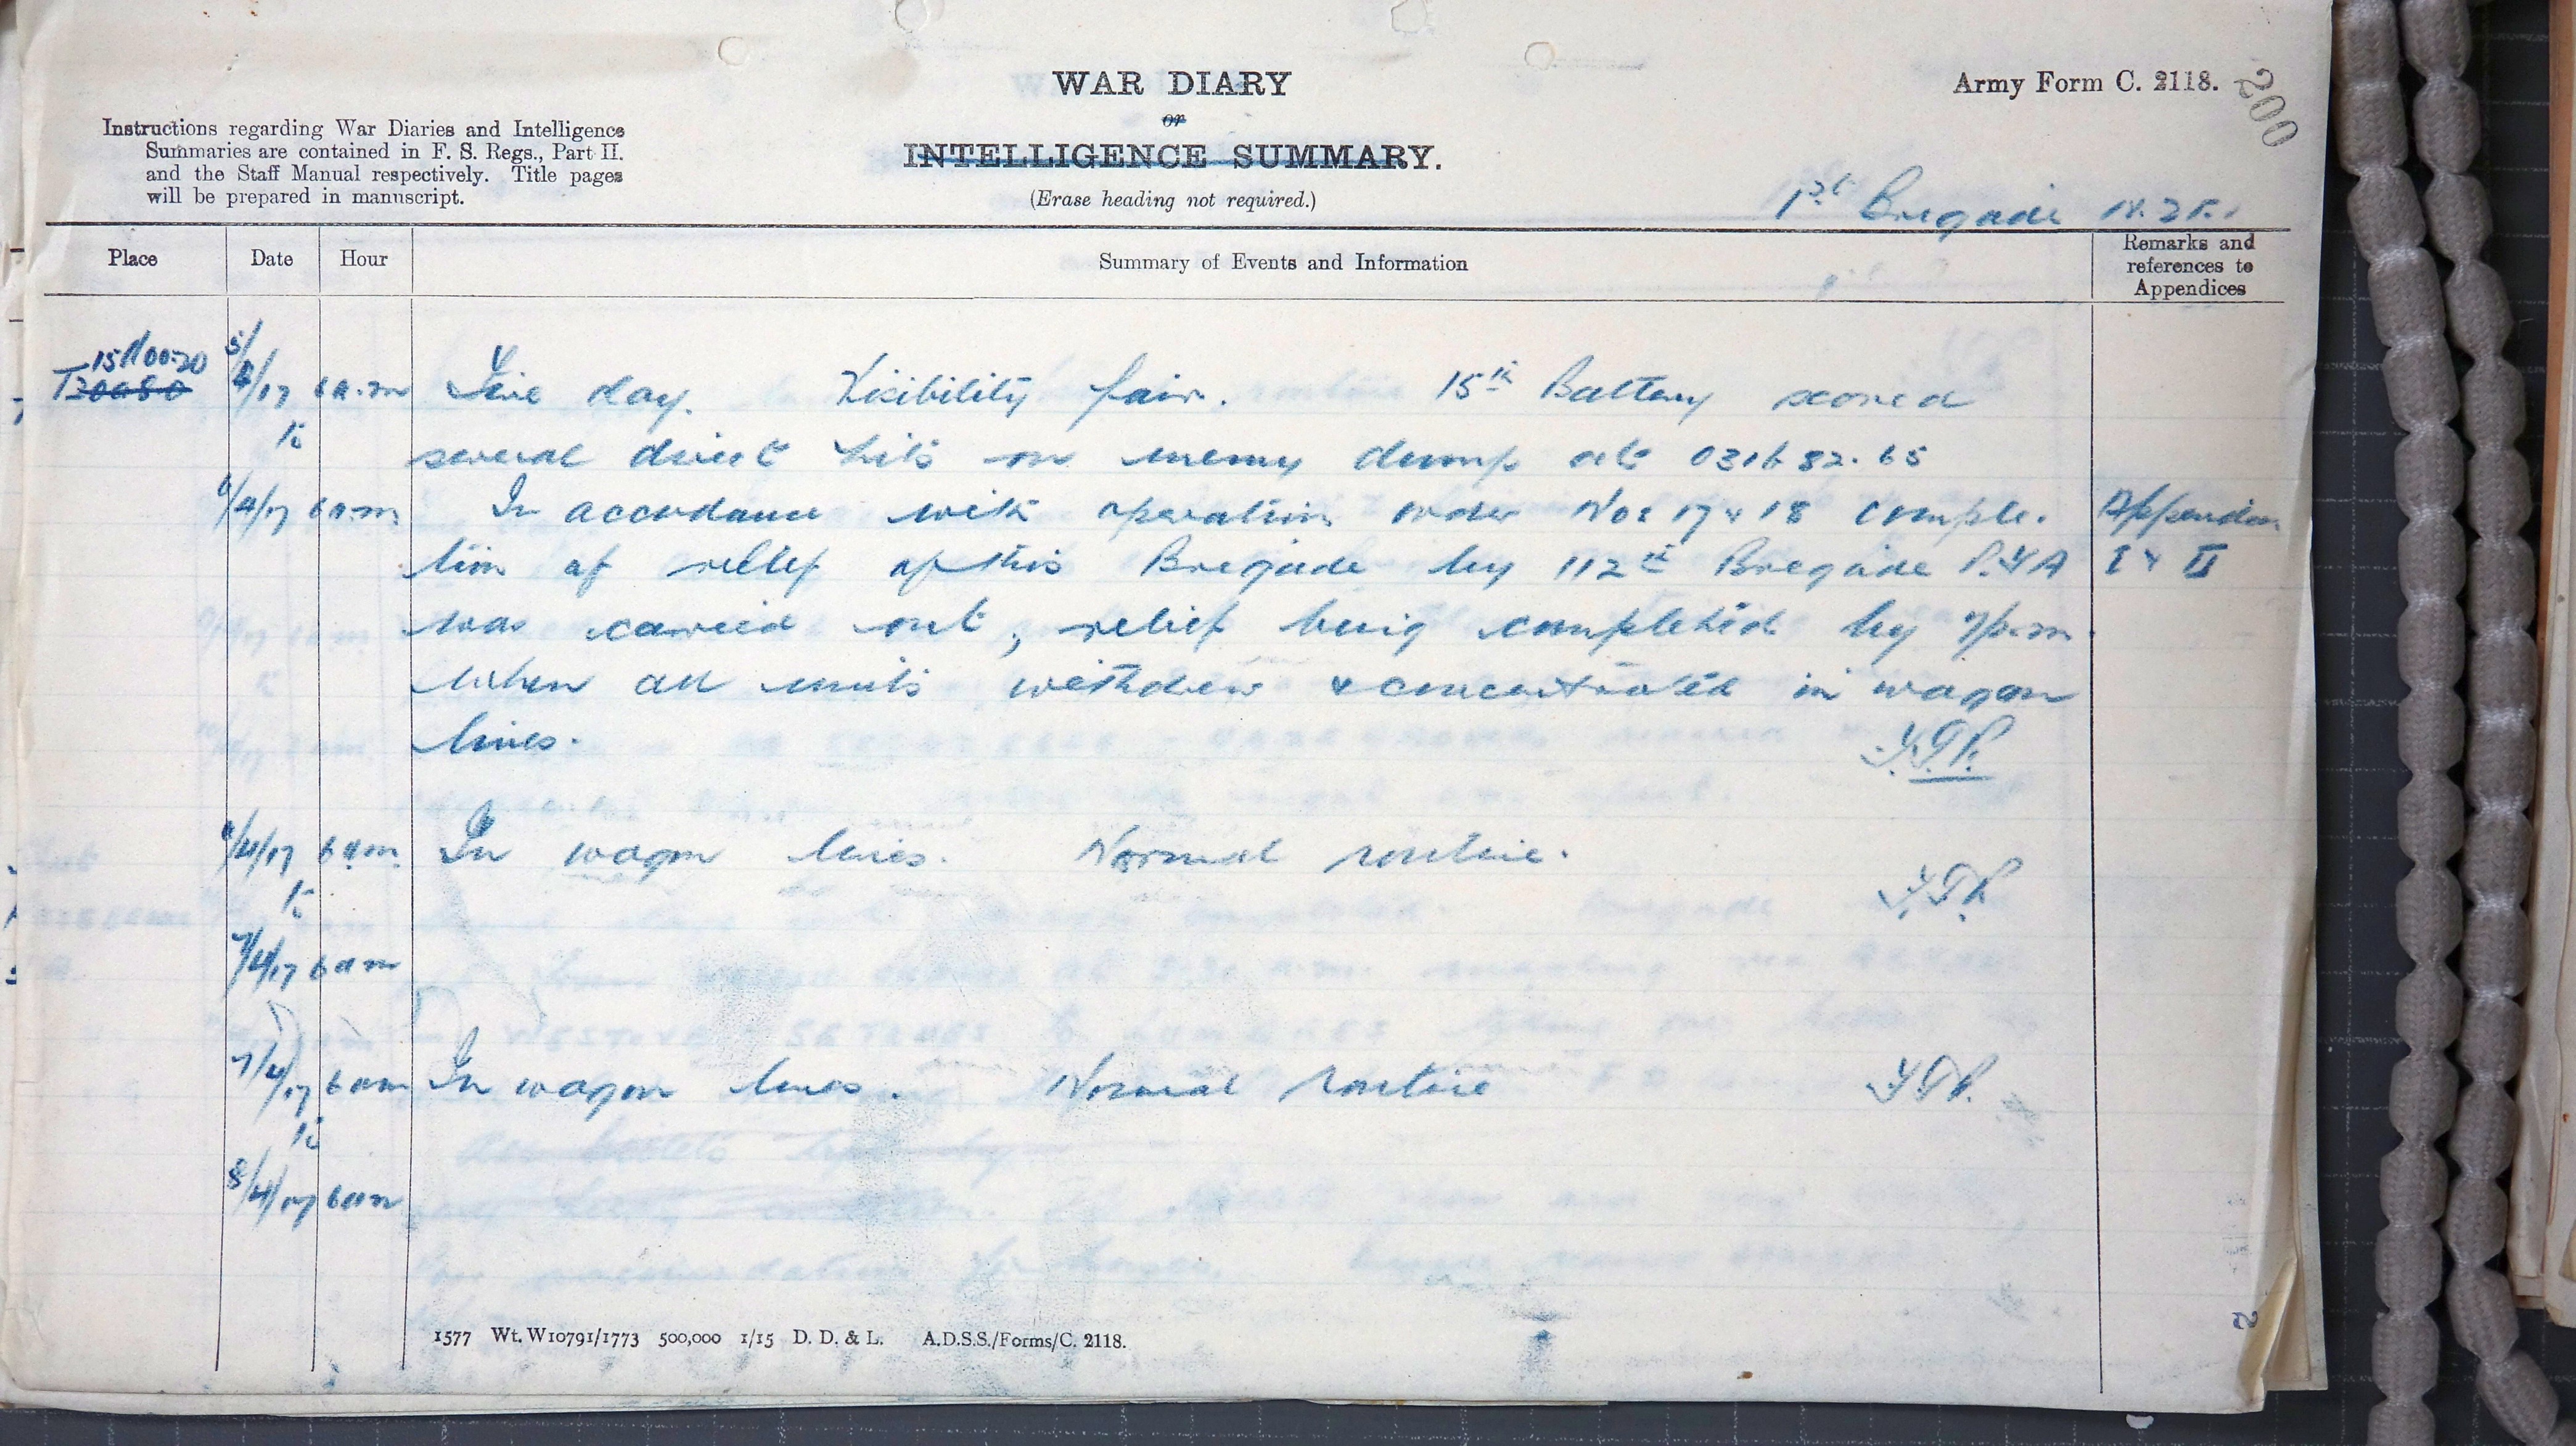 WAR DIARY
or
INTELLIGENCE SUMMARY.
(Erase heading not required.)
Army Form C. 2118.
200
Instructions regarding War Diaries and Intelligence
Summaries are contained in F. S. Regs., Part II.
and the Staff Manual respectively. Title pages
will be prepared in manuscript.
1st Brigade
Place Date Hour Summary of Events and Information Remarks and references to Appendices
5/4/17 6 a.m Fine day. Visibility fair. 15th Battery scored
to several direct hits on enemy dump at 031b 82.65
6/4/17 6 a.m. In accordance with operation order Nos 17 & 18 comple-
tion of relief of this Brigade by 112th Brigade R.F.A I & II
was carried out, relief being completed by 7p.m.
when all units withdrew & concentrated in wagon
lines.
6/4/17 6 am. In wagon lines. Normal routine.
to
7/4/17 6 am
7/4/17 6 am In wagon lines. Normal routine
to
8/4/17 6 am
1577 Wt. W10791/1773 500,000 1/15 D. D. & L. A.D.S.S./Forms/C. 2118.
2